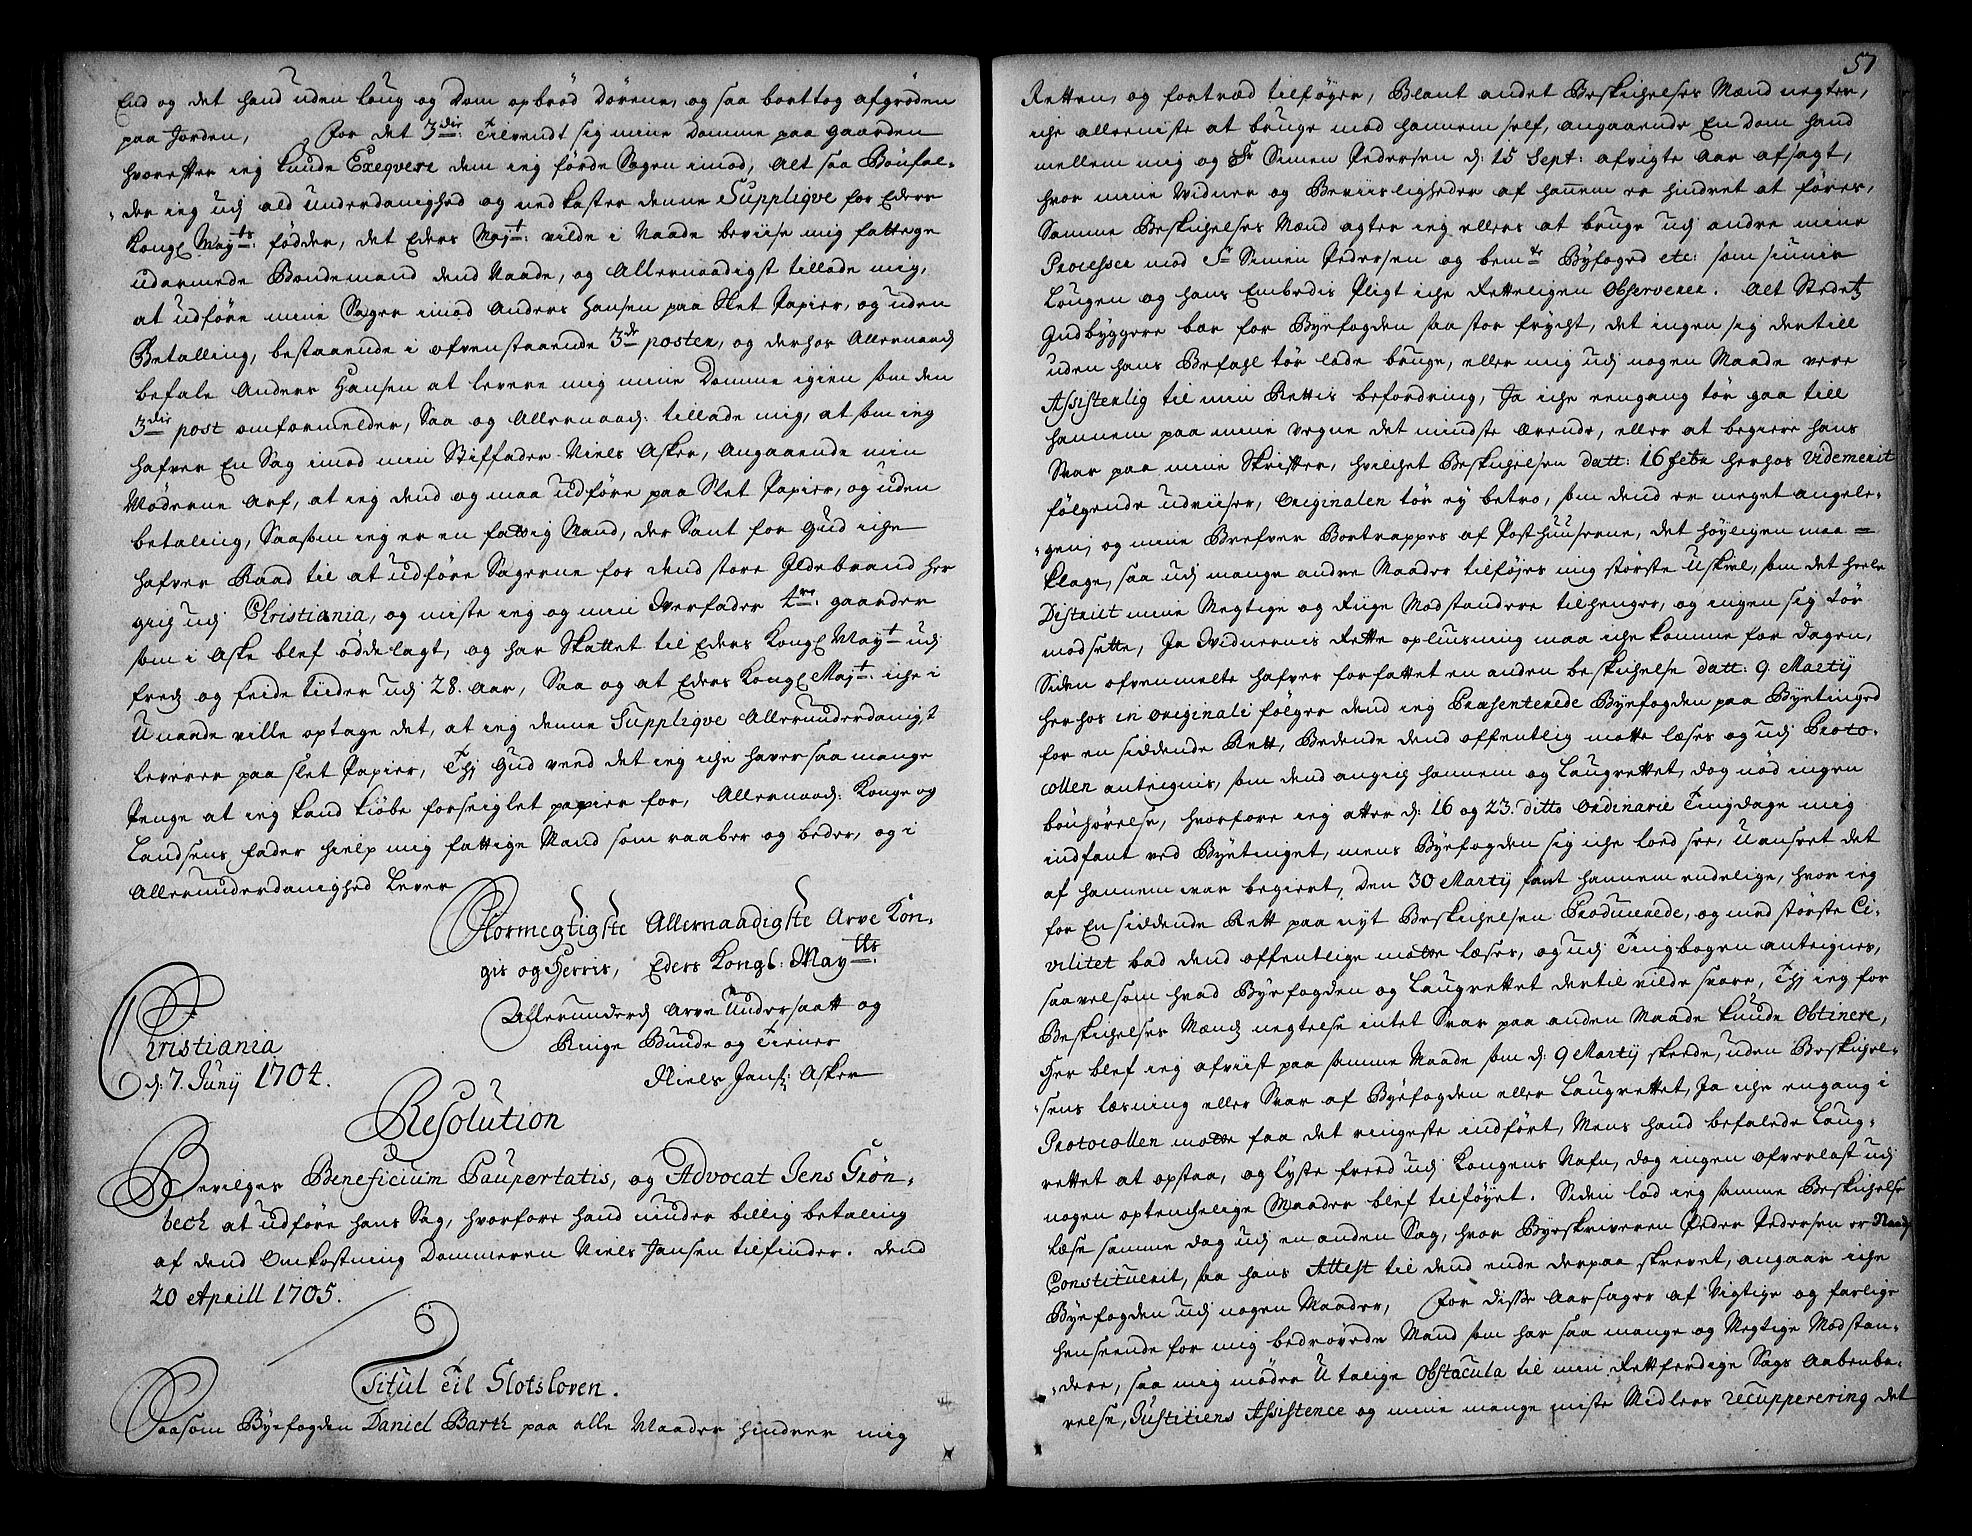 End og det hand uden Loug og Dom opbrød Dørene, og saa borttog afgrøden
paa Jorden, For det 3die: Tilvendt sig mine Domme paa gaarden
hvorefter ieg kunde Exeqvere dem ieg førde Sagen imod, Alt saa Bønfal-
der ieg udj ald underdanighed og nedkaster denne Suppliqve for Eders
Kongl Mayts: fødder, det Eders Mayt: vilde i Naade beviise mig fattege
udarmede Bondemand dend Naade, og Allernaadigst tillade mig,
at udføre mine Sager imod Anders Hansen paa Slet Papier, og uden
Betalling, bestaaende i ofvenstaaende 3de poster, og derhos Allernaad
befale Anders Hansen at levere mig mine Domme igien som den
3die post omformelder, Saa og Allernaad: tillade mig, at som ieg
hafver En Sag imod min Stiffader Niels Asker, Angaaende min
Møderne Arf, at ieg dend og maa udføre paa Slet Papier, og uden
betaling, Saasom ieg er en fattig Mand, der Sant for Gud iche
hafver Raad til at udføre Sagerne for dend store Ildebrand her
gich udj Christiania, og miste ieg og min Verfader 4re: gaarder
som i Aske blef øddelagt, og har Skattet til Eders Kongl Mayt udj
fred og feide tiider udj 28. Aar, Saa og at Eders Kongl Mayt: iche i
Unaade ville optage det, at ieg denne Suppliqve Allerunderdanigst
leverer paa slet Papier, Thj Gud veed det ieg iche haver saa mange
Penge at ieg kand kiøbe forseiglet papier for, Allernaad: Konge og
Landsens fader hielp mig fattige Mand som raaber og beder, og i
Allerunderdanighed lever
Stormegtigste Allernaadigste Arve Kon-
gis og Herris, Eders Kongl: Maytts:
Allerunderd Arve Undersaatt og
Ringe Bunde og Tiener
Niels Jans: Asker
Christiania
d: 7. Junij 1704.
Resolution
Bevilges Beneficium Paupertatis, og Advocat Jens Grøn-
bech at udføre hans Sag, hvorfore hand niuder billig betaling
af dend Omkostning Dommeren Niels Jansen tilfinder. Dend
20 Aprill 1705.
Titul Til Slotsloven.
Saasom Byefogden Daniel Barth paa alle Maader hindrer mig
57
Retten, og fortræd tilføyer, Blant andet Beskichelses Mænd negter,
iche allerniste at bruge mod hannem self, angaaende En dom hand
mellem mig og Sr Simen Pedersen d: 15 Sept: afvigte Aar afsagt,
hvor mine Vidner og Beviisligheder af hannem er hindret at føres,
Samme Beskichelses Mænd agter ieg ellers at bruge udj andre mine
Processer mod Sr Simen Pedersen og bemte Byfoged etc: som
Lougen og hans Embedis Pligt iche Retteligen Observerer. Alt Stedets
Indbyggere bær for Byefogden saa stor frycht, det ingen sig dertill
uden hans Befahl tør lade bruge, eller mig udj nogen Maade vere
Assistenlig til min Rettis befordring, Ja iche eengang tør gaa till
hannem paa mine vegne det mindste Ærende, eller at begiere hans
Svar paa mine Skrifter, hvilchet Beskichelsen datt: 16 febr herhos videmerit
følgende udviiser, Originalen tør ej betro, som dend er meget angele-
gen, og mine Brefver Bortrappes af Posthuuserne, det høyligen maa
klage, saa udj mange andre Maader tilføjes mig største Uskiel, som det heele
District mine Megtige og Riige Modstandere tilhenger, og ingen sig tør
modsette, Ja Vidnernis Rette opliusning maa iche komme for dagen,
Siden ofvenmelte hafver forfattet en anden beskichelse datt: 9 Martij
herhos in originali følger dend ieg Præsenterede Byefogden paa Byetinged
for en siddende Rett, Bedende dend offentlig motte læses og udj Proto-
collen anteignis, som dend angich hannem og Laugrettet, dog nød ingen
bønhørelse, hvorfore ieg atter d: 16 og 23. ditto Ordinarie Tingdage mig
indfant ved Byetinget, mens Byefogden sig iche loed see, Uanseet det
af hannem var begiert, Den 30 Martij fant hannem endelige, hvor ieg
for En siddende Rett paa nyt Beskichelsen Producerede, og med største Ci-
vilitet bad dend offentlige motte læses, og udj Tingbogen anteignes,
saavelsom hvad Byefogden og Laugrettet dertil vilde svare, Thj ieg for
Beskichelses Mænd negtelse intet Svar paa anden Maade kunde Obtinere,
Her blef ieg afviist paa samme Maade som d: 9 Martij skeede, uden Beskichel-
sens læsning eller Svar af Byefogden eller Laugrettet, Ja iche engang i
Protocollen motte faa det ringeste indført, Mens hand befalede Laug-
rettet at opstaa, og lyste freed udj Kongens Nafn, dog ingen ofverlast udj
nogen optenchelige Maader blef tilføyet. Siden lod ieg samme Beskichelse
læse samme dag udj en anden Sag, hvor Byeskriveren Peder Pedersen er Naad
Constituerit, saa hans Attest til dend ende derpaa skrevet, angaar iche
Byefogden udj nogen Maader, For disse Aarsager af Vigtige og farlige
henseende for mig bedrøvede Mand som har saa mange og Megtige Modstan-
dere, saa mig møder Utalige Obstacula til min Rettferdige Sags Aabenba-
relse, Justitiens Assistence og mine mange miste Midlers recupperering det